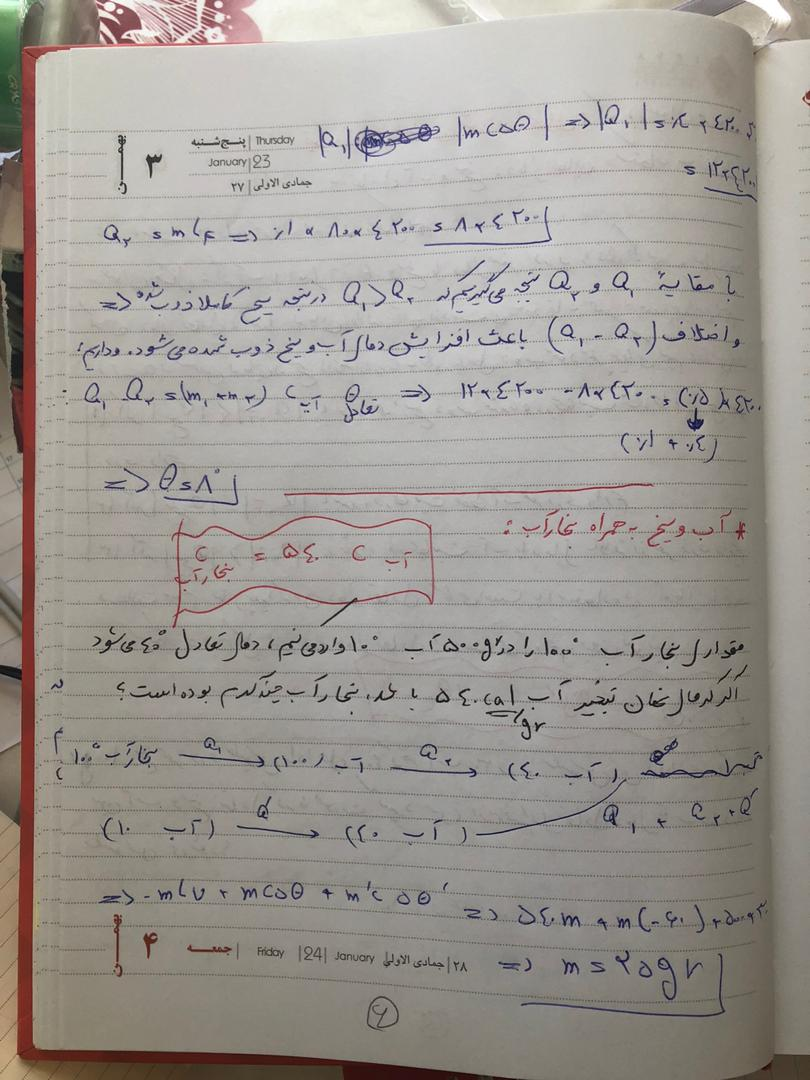 ۳ پنج‌شنبه | Thursday
January | 23
۲۷ جمادی الاولی
|Q₁| |mcΔθ| => |Q₁| =
= ۱۲×۴۲۰۰
Q₂ = mLF => ۰/۱ × ۸۰×۴۲۰۰ = ۸×۴۲۰۰
با مقایسهٔ Q₁ و Q₂ نتیجه می‌گیریم که Q₁>Q₂ در نتیجه یخ کاملا ذوب شده <=
و اختلاف (Q₁ - Q₂) باعث افزایش دمای آب و یخ ذوب شده می‌شود. و داریم:
Q₁ Q₂ = (m₁+m₂) C آب θ تعادل => ۱۲×۴۲۰۰ - ۸×۴۲۰۰ = (۰/۵)×۴۲۰۰
(۰/۴ + ۰/۱)
=> θ = ۸°
* آب و یخ به همراه بخار آب :
C بخار آب = ۵۴۰ C آب
مقداری بخار آب ۱۰۰° را در ۵۰۰g آب ۱۰° وارد می‌کنیم، دمای تعادل ۴۰° می‌شود
اگر گرمای نهان تبخیر آب ۵۴۰ cal/gr باشد، بخار آب چند گرم بوده است؟
بخار آب ۱۰۰° Q₁ → آب (۱۰۰) Q₂ → (آب ۴۰)
(آب ۱۰) Q' → (آب ۴۰) Q₁ + Q₂+Q'
=> -mLV + mcΔθ + m'c Δθ' => ۵۴۰m + m(-۶۰) + ۵۰۰×۳۰
۴ جمعه | Friday |24| January جمادی الاولی | ۲۸ => m = ۲۵gr
۶